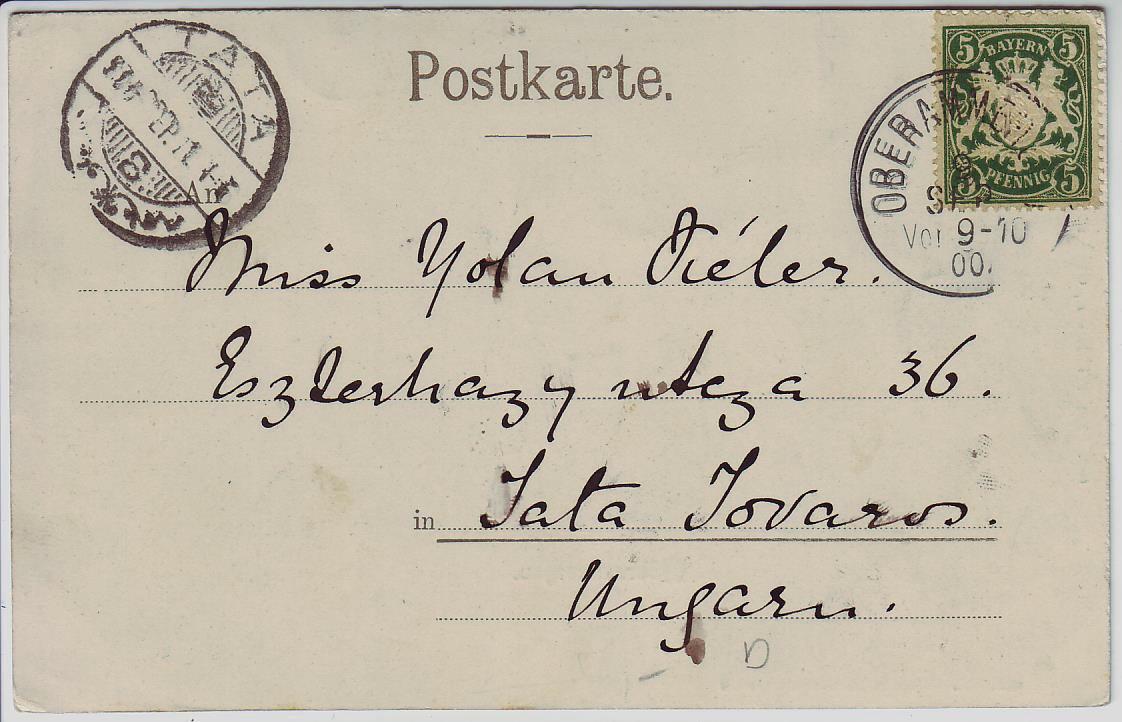 Postkarte.
TATA
5 BAYERN 5
5 PFENNIG 5
OBERAMM
SEP
Vor 9-10
00.
An
Miss Yolan Viéler.
Eszterhazy utcza 36.
in Tata Tovaros.
Ungarn.
D